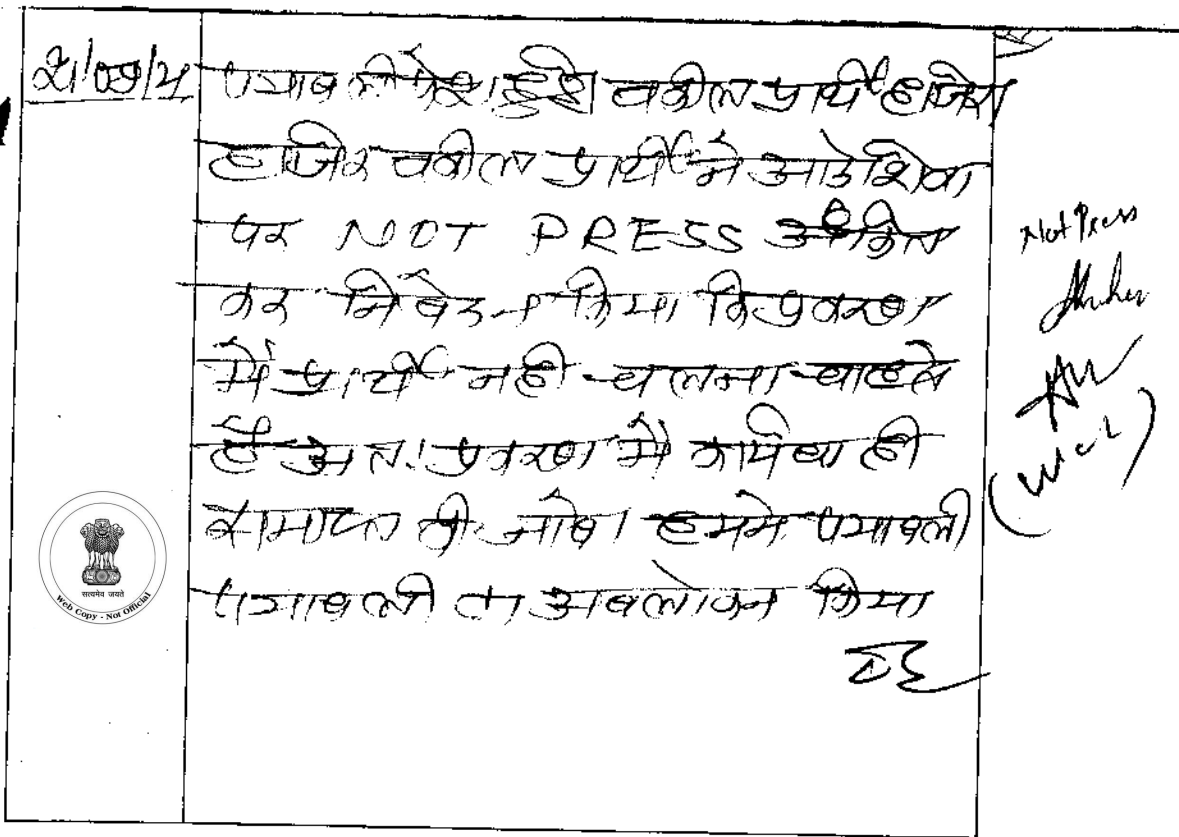 पत्रावली पेश हुई। वकील प्रार्थी हाजिर।
हाजिर वकील प्रार्थी ने आदेशिका
पर NOT PRESS अंकित
कर निवेदन किया कि प्रकरण
में प्रार्थी नही चलना चाहते
है अतः प्रकरण में कार्यवाही
समाप्त की जावे। हमने पत्रावली
पत्रावली का अवलोकन किया
Not Press
सत्यमेव जयते
Web Copy - Not Official